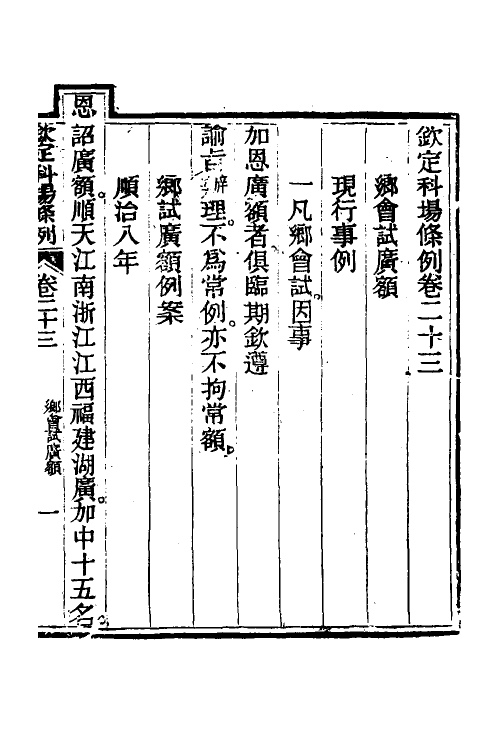 欽定科場條例卷二十三
鄉會試廣額
現行事例
一凡鄉會試因事
加恩廣額者俱臨期欽遵
諭旨辦理不爲常例亦不拘常額
鄉試廣額例案
順治八年
恩詔廣額順天江南浙江江西福建湖廣加中十五名
欽定科場條例 卷二十三 鄉會試廣額 一